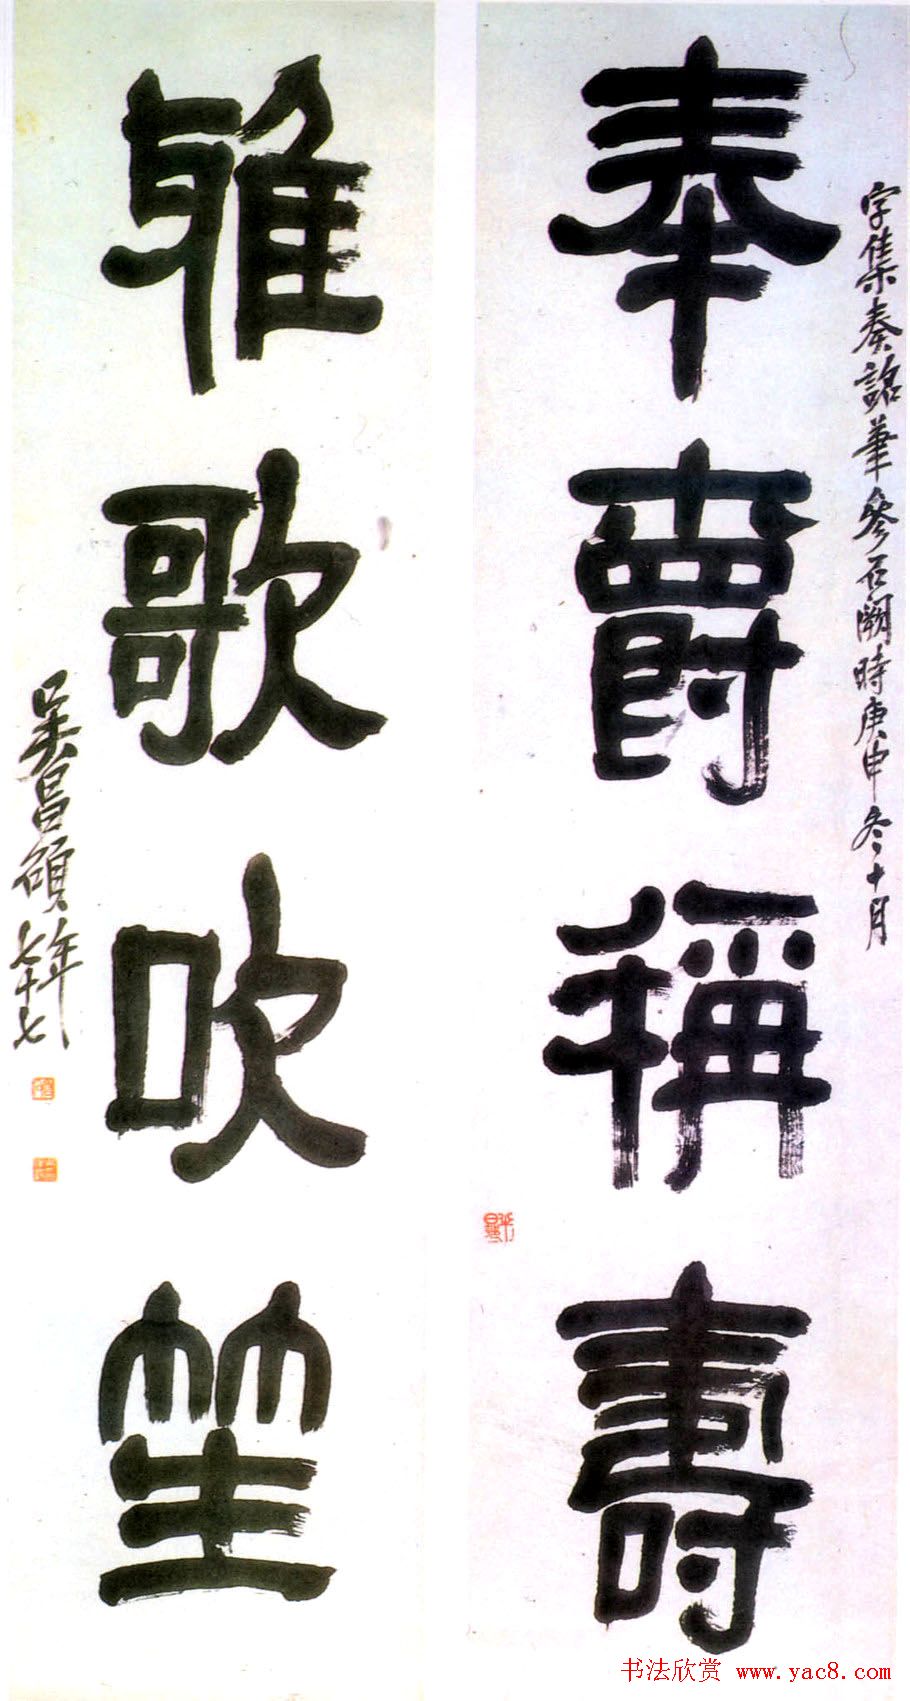 奉爵稱壽
字集奏詔筆參石闕時庚申冬十月
雅歌吹笙
吳昌碩年
七十七
书法欣赏 www.yac8.com